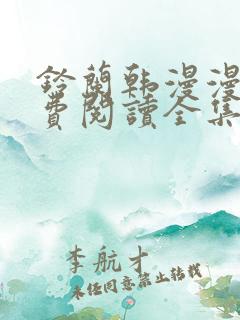 鈴蘭韩漫漫
費閱讀全集
李航才
未经同意禁止转载